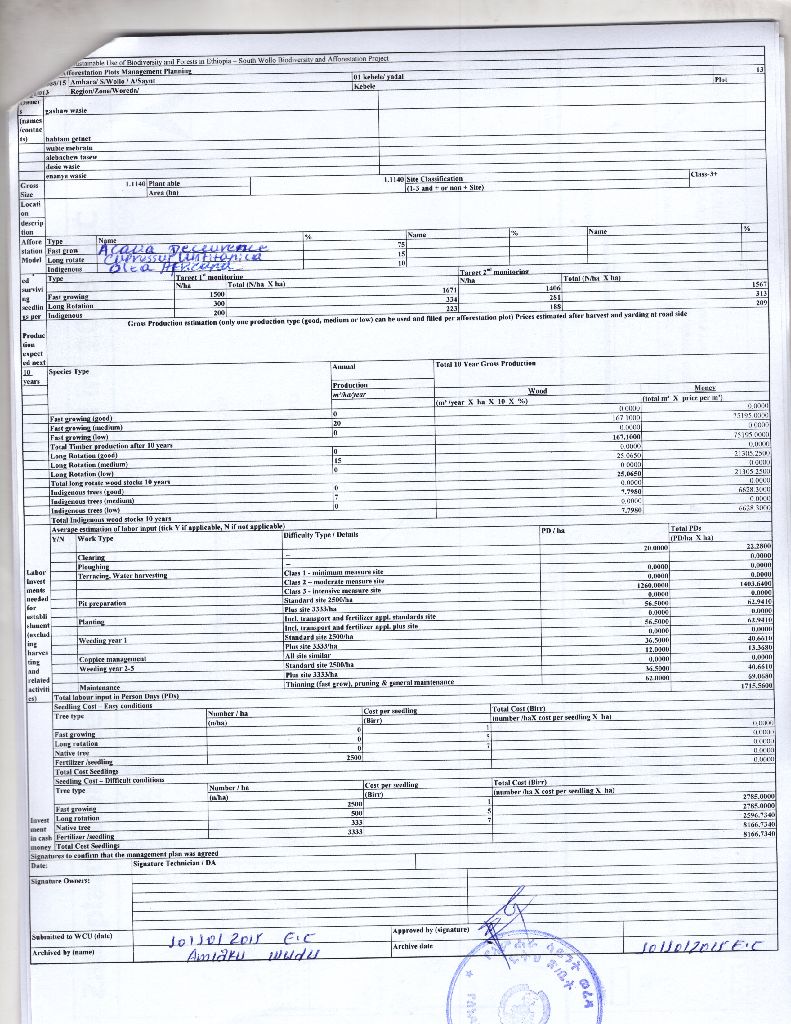 ustainable Use of Biodiversity and Forests in Ethiopia – South Wollo Biodiversity and Afforestation Project
fforestation Plots Management Planning 13
Amhara/ S/Wollo / A/Saynt 01 kebele/ yadal Plot
Region/Zone/Woreda/ Kebele
gashaw wasie
habtam getnet
wubie mebratu
alebachew tasew
desie wasie
enanye wasie
Gross Size 1.1140 Plant able Area (ha) 1.1140 Site Classification (1-3 and + or non + Site) Class-3+
Location description
Afforestation Model Type Name % Name % Name %
Fast grow 75
Long rotate 15
Indigenous 10
Type Target 1st monitoring Target 2nd monitoring
N/ha Total (N/ha X ha) N/ha Total (N/ha X ha)
Fast growing 1500 1671 1406 1567
Long Rotation 300 334 281 313
Indigenous 200 223 188 209
Gross Production estimation (only one production type (good, medium or low) can be used and filled per afforestation plot) Prices estimated after harvest and yarding at road side
Production expected next 10 years
Species Type Annual Total 10 Year Gross Production
Production Wood Money
m³/ha/year (m³/year X ha X 10 X %) (total m³ X price per m³)
Fast growing (good) 0 0.0000 0.0000
Fast growing (medium) 20 167.1000 75195.0000
Fast growing (low) 0 0.0000 0.0000
Total Timber production after 10 years 167.1000 75195.0000
Long Rotation (good) 0 0.0000 0.0000
Long Rotation (medium) 15 25.0650 21305.2500
Long Rotation (low) 0 0.0000 0.0000
Total long rotate wood stocks 10 years 25.0650 21305.2500
Indigenous trees (good) 0 0.0000 0.0000
Indigenous trees (medium) 7 7.7980 6628.3000
Indigenous trees (low) 0 0.0000 0.0000
Total Indigenous wood stocks 10 years 7.7980 6628.3000
Average estimation of labor input (tick Y if applicable, N if not applicable)
Y/N Work Type Difficulty Type / Details PD / ha Total PDs
(PD/ha X ha)
Clearing – 20.0000 22.2800
Ploughing – 0.0000
Terracing, Water harvesting Class 1 - minimum measure site 0.0000 0.0000
Class 2 – moderate measure site 0.0000 0.0000
Class 3 - intensive measure site 1260.0000 1403.6400
Pit preparation Standard site 2500/ha 0.0000 0.0000
Plus site 3333/ha 56.5000 62.9410
Planting Incl. transport and fertilizer appl. standards site 0.0000 0.0000
Incl. transport and fertilizer appl. plus site 56.5000 62.9410
Weeding year 1 Standard site 2500/ha 0.0000 0.0000
Plus site 3333/ha 36.5000 40.6610
Coppice management All site similar 12.0000 13.3680
Weeding year 2-5 Standard site 2500/ha 0.0000 0.0000
Plus site 3333/ha 36.5000 40.6610
Maintenance Thinning (fast grow), pruning & general maintenance 62.0000 69.0680
Total labour input in Person Days (PDs) 1715.5600
Seedling Cost – Easy conditions
Tree type Number / ha Cost per seedling Total Cost (Birr)
(n/ha) (Birr) (number /haX cost per seedling X ha)
Fast growing 0 1 0.0000
Long rotation 0 5 0.0000
Native tree 0 7 0.0000
Fertilizer /seedling 2500 0.0000
Total Cost Seedlings 0.0000
Seedling Cost – Difficult conditions
Tree type Number / ha Cost per seedling Total Cost (Birr)
(n/ha) (Birr) (number /ha X cost per seedling X ha)
Fast growing 2500 1 2785.0000
Long rotation 500 5 2785.0000
Native tree 333 7 2596.7340
Fertilizer /seedling 3333 8166.7340
Total Cost Seedlings 8166.7340
Signatures to confirm that the management plan was agreed
Date: Signature Technician / DA
Signature Owners:
Submitted to WCU (date) 10/101 2015 E.C Approved by (signature)
Archived by (name) Archive date E.C